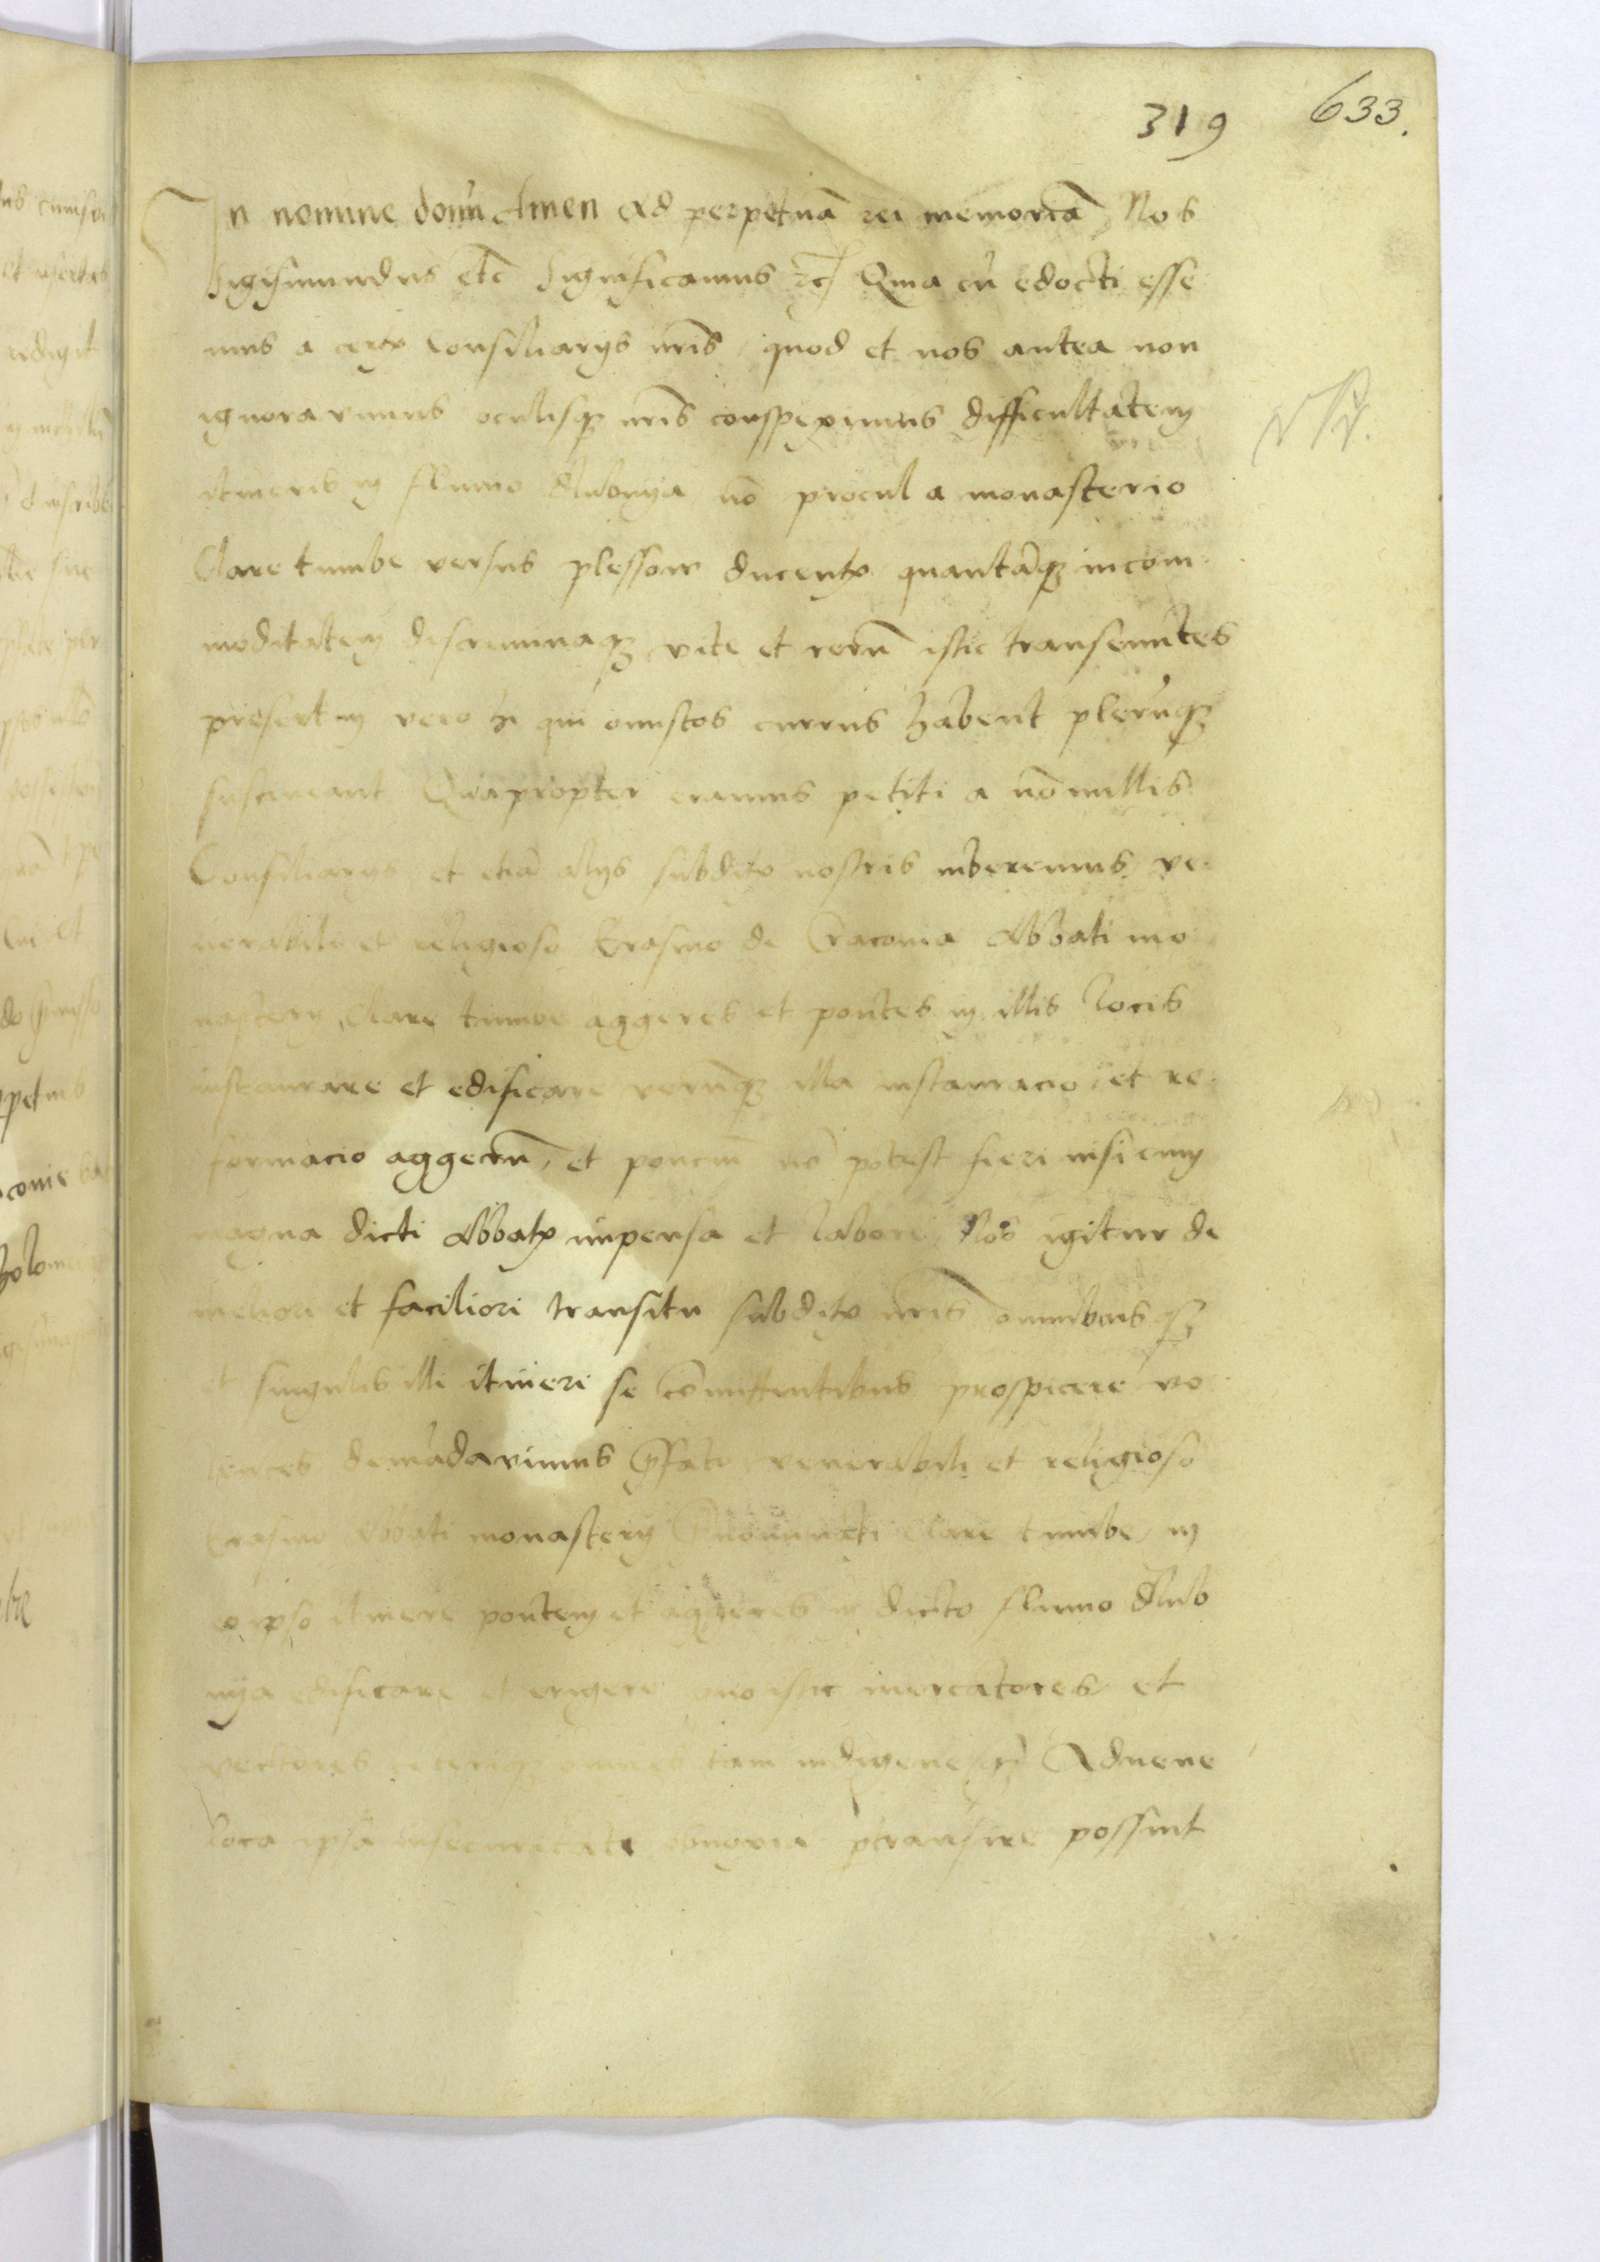 319 633.
In nomine domi Amen Ad perpetuā rei memoriā Nos
Sigismundus etc Significamus etc Quia cū edocti esse
mus a certis Consiliarys nris quod et nos antea non
ignoravimus oculisq nris conspeximus difficultatem
itineris in fluvio Dlubnya nō procul a monasterio
Clare tumbe versus plessow ducentis quantāq incom
moditatem discriminaq vite et rerū istic transeuntes
presertim vero hi qui onustos currus habent plerūq
sustineant Quapropter eramus petiti a nōnullis
Consiliarys et etiā alys subditis nostris juberemus ve
nerabili et religioso Erasmo de Cracovia Abbati mo
nastery Clare tumbe aggeres et pontes in illis locis
instaurare et edificare verumq illa instauracio et re
formacio aggerū et poncium nō potest fieri nisi cum
magna dicti Abbatis impensa et labore Nos igitur de
meliori et faciliori transitu subditis nris omnibusq
et singulis illi itineri se cōmittentibus prospicere vo
lentes demādavimus pfato venerabili et religioso
Erasmo Abbati monastery Clare tumbe in
eo ipso itinere pontem et aggeres in dicto fluvio Dlub
nya edificare et erigere quo istic mercatores et
vectores ceteriq omnes tam indigene q Advene
loca ipsa insecuritati obnoxia ptransire possint